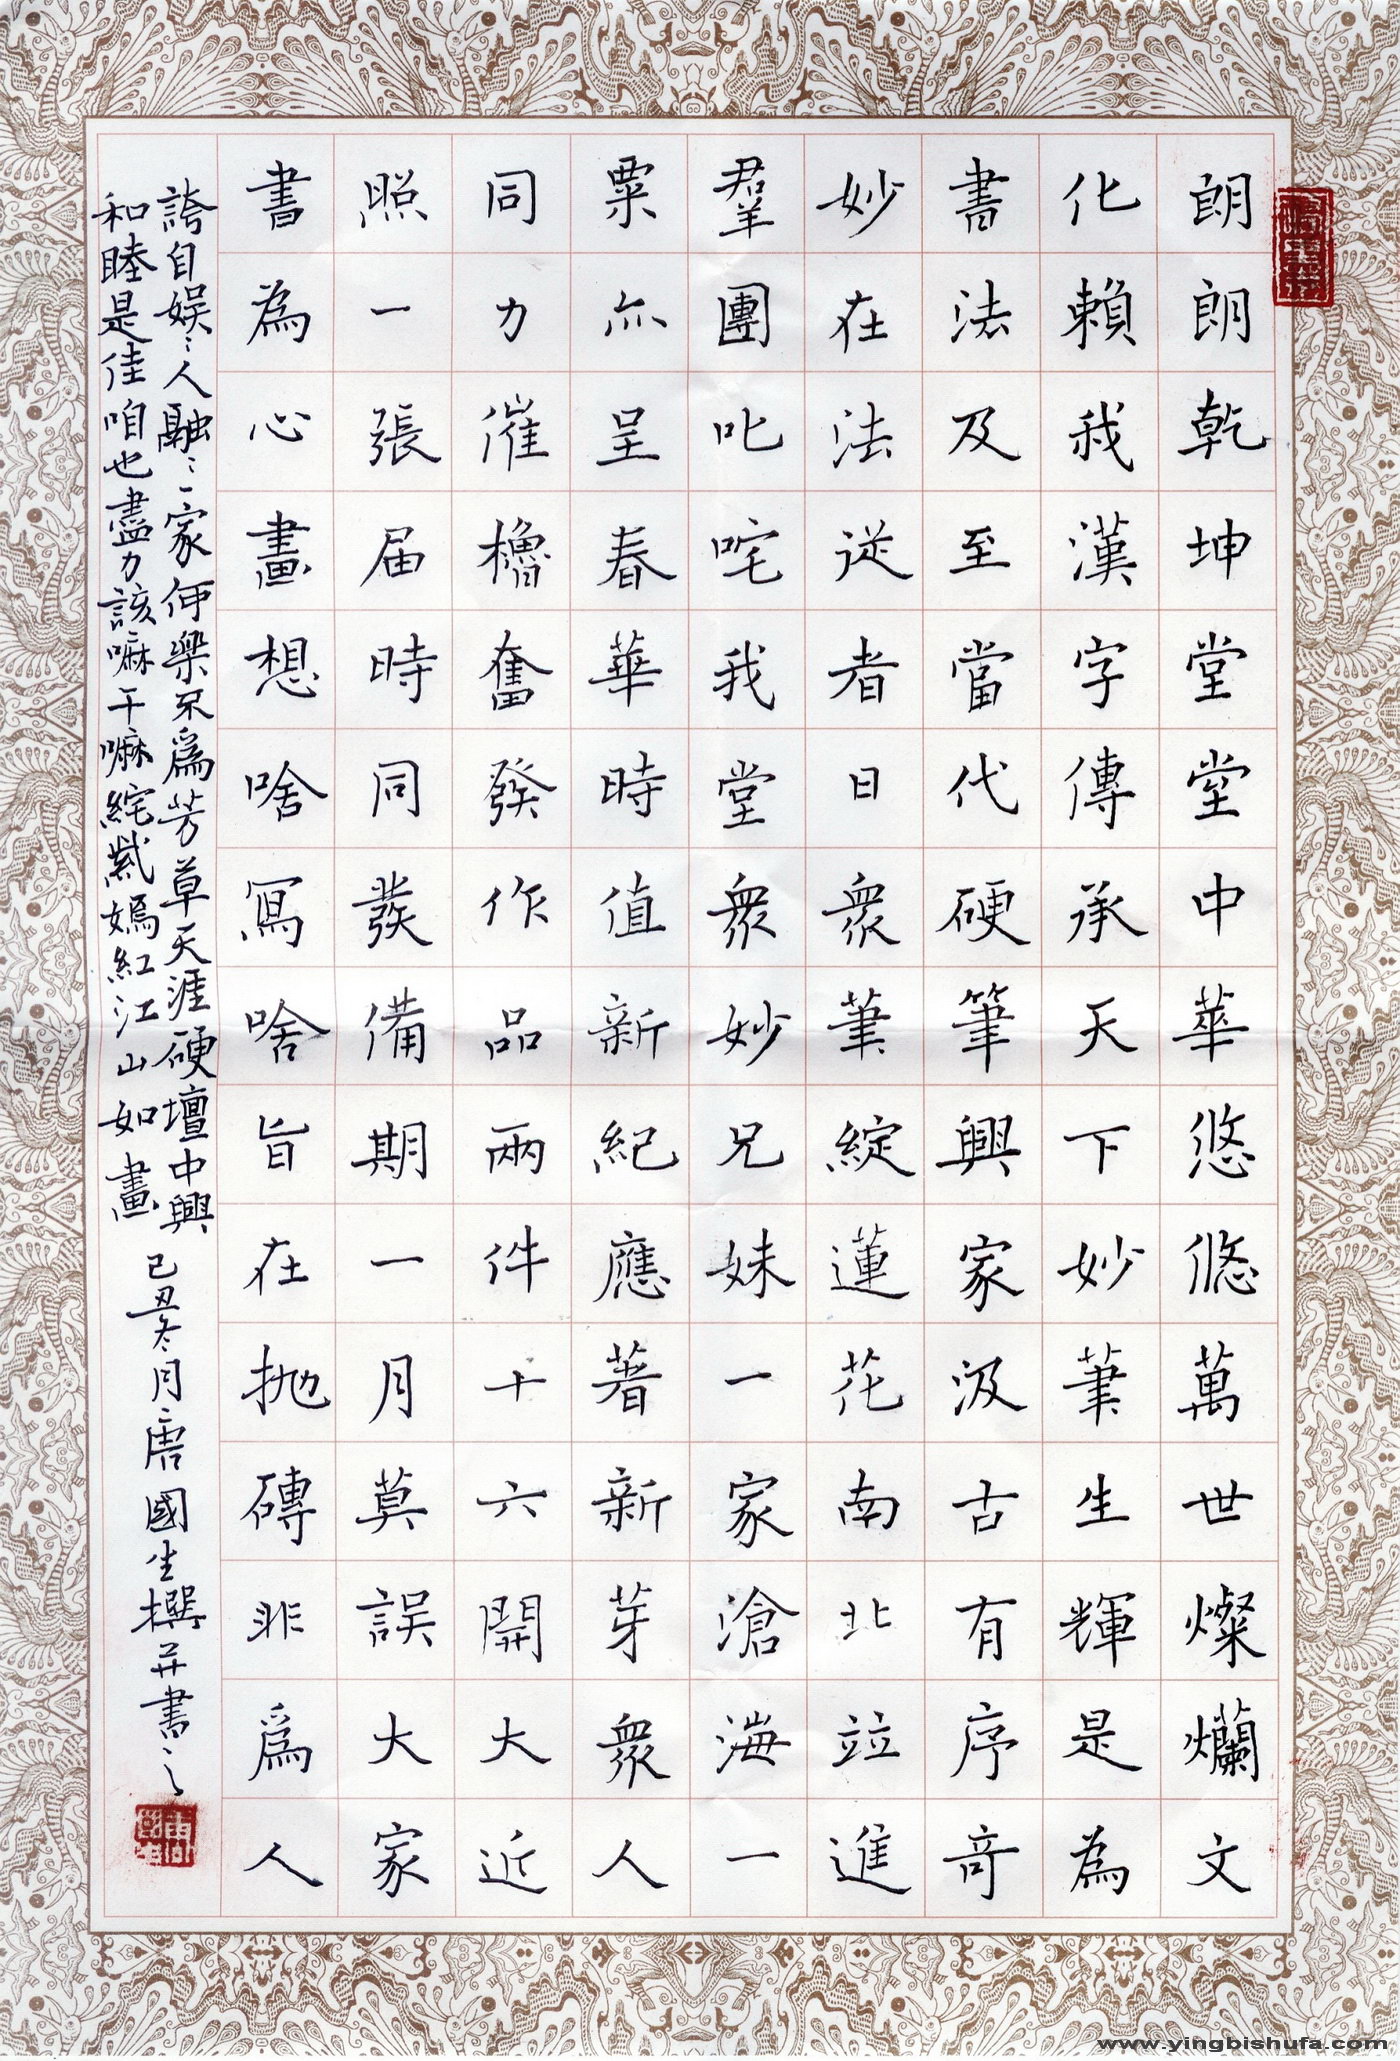 朗朗乾坤堂堂中華悠悠萬世燦爛文
化賴我漢字傳承天下妙筆生輝是為
書法及至當代硬筆興家汲古有序奇
妙在法從者日衆筆綻蓮花南北竝進
羣團叱咤我堂衆妙兄妹一家滄海一
粟亦呈春華時值新紀應著新芽衆人
同力催櫓奮發作品兩件十六開大近
照一張届時同發備期一月莫誤大家
書為心畫想啥寫啥旨在拋磚非爲人
誇自娱〻人融〻一家何樂不爲芳草天涯硬壇中興
和睦是佳咱也盡力該嘛干嘛綻紫嫣紅江山如畫
己丑冬月唐國生撰并書之
www.yingbishufa.com